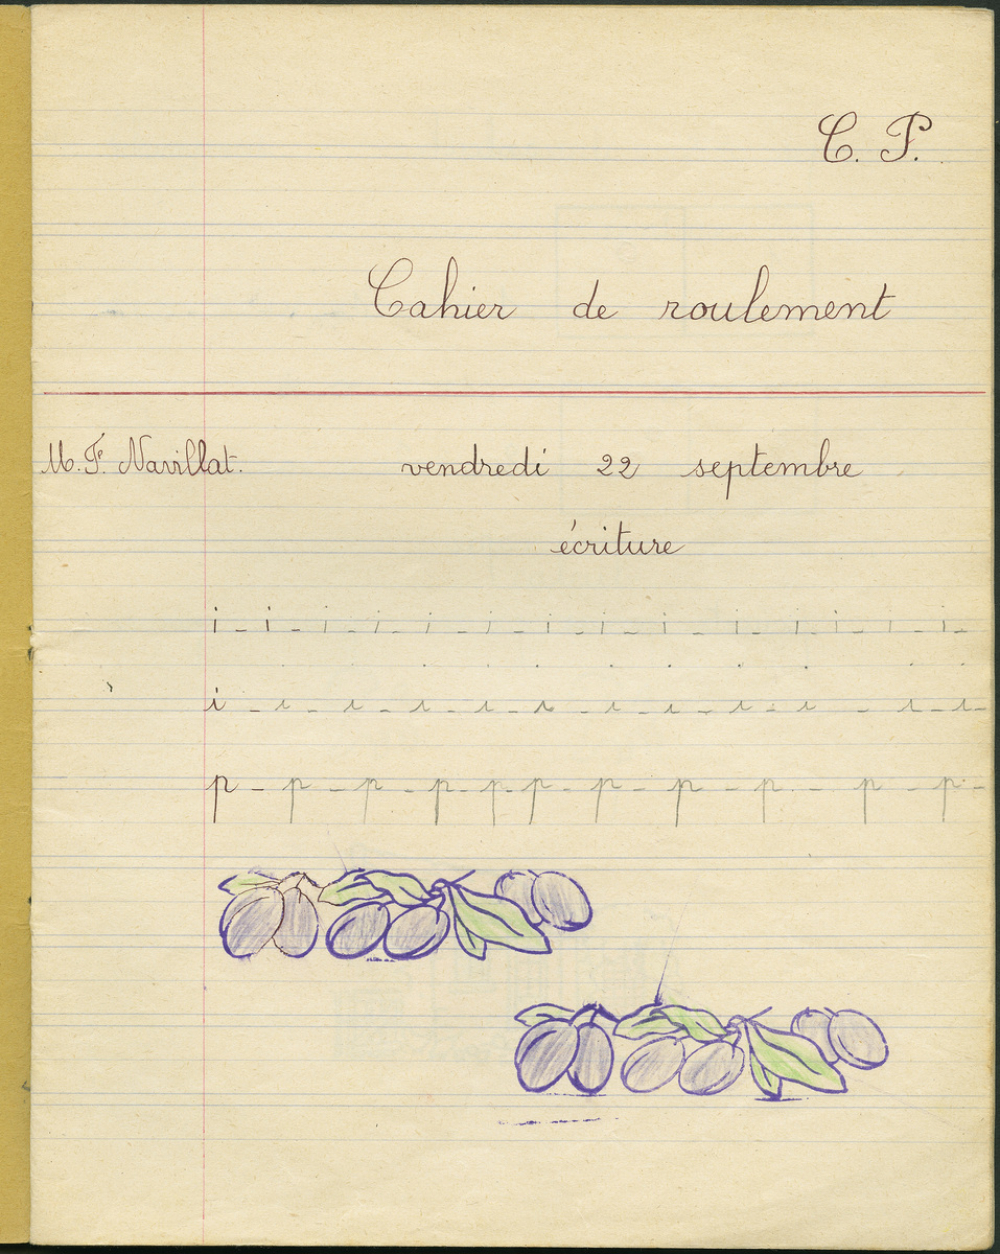 C. P.
Cahier de roulement
M. F. Navillat. vendredi 22 septembre
écriture
i - i - i - i - i - i - i - i - i - i - i - i - i - i -
i - i - i - i - i - i - i - i - i - i - i - i -
p - p - p - p - p - p - p - p - p - p - p -